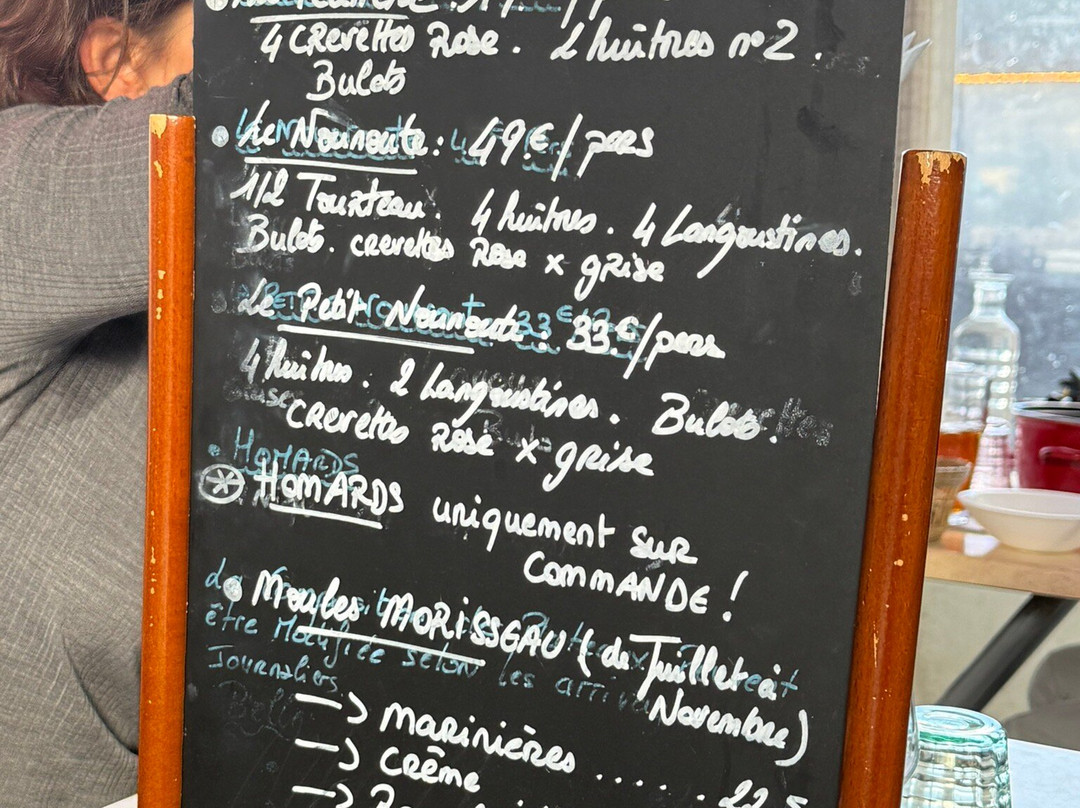 4 CREVEttes Rose. 2 huîtres n°2.
Bulots
Le Noirmoute: 49.€/pers
1/2 Tourteau. 4 huîtres. 4 Langoustines.
Bulots. crevettes Rose x grise
Le Petit Noirmoute: 33.€/pers
4 huîtres. 2 Langoustines. Bulots.
crevettes Rose x grise
HOMARDS
HOMARDS uniquement SUR
COMMANDE!
Moules MORISSEAU (de Juillet à
être Modifiée selon les
Novembre)
Journaliers
→ marinières ..... 22
→ crême